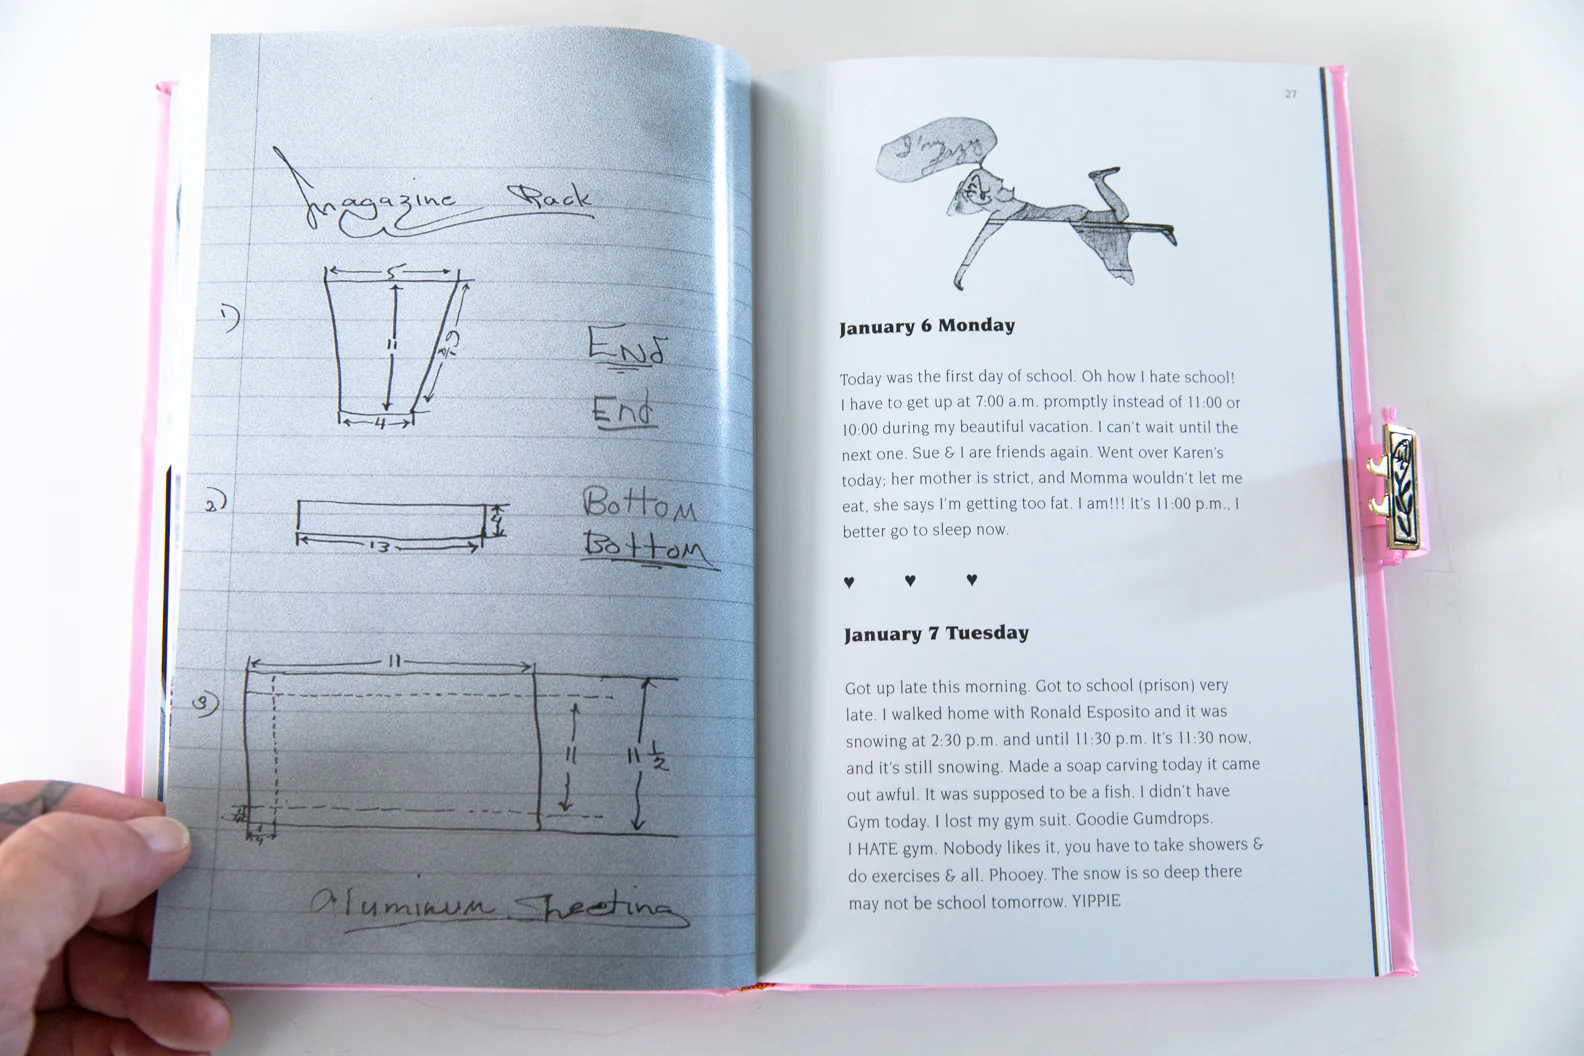 Magazine Rack
5
1)
11
End
End
4
2)
4
Bottom
Bottom
13
11
3)
11
11 1/2
1/2
Aluminum Sheeting
27
I'm
January 6 Monday
Today was the first day of school. Oh how I hate school!
I have to get up at 7:00 a.m. promptly instead of 11:00 or
10:00 during my beautiful vacation. I can't wait until the
next one. Sue & I are friends again. Went over Karen's
today; her mother is strict, and Momma wouldn't let me
eat, she says I'm getting too fat. I am!!! It's 11:00 p.m., I
better go to sleep now.
♥ ♥ ♥
January 7 Tuesday
Got up late this morning. Got to school (prison) very
late. I walked home with Ronald Esposito and it was
snowing at 2:30 p.m. and until 11:30 p.m. It's 11:30 now,
and it's still snowing. Made a soap carving today it came
out awful. It was supposed to be a fish. I didn't have
Gym today. I lost my gym suit. Goodie Gumdrops.
I HATE gym. Nobody likes it, you have to take showers &
do exercises & all. Phooey. The snow is so deep there
may not be school tomorrow. YIPPIE